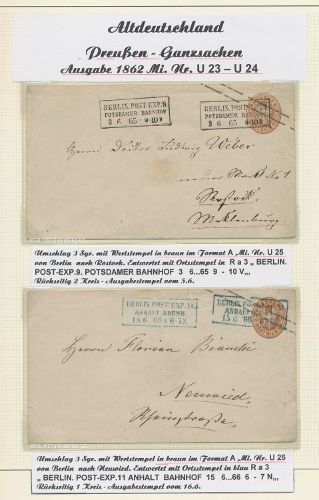 Altdeutschland
Preußen - Ganzsachen
Ausgabe 1862 Mi. Nr. U 23 – U 24
BERLIN, POST-EXP. 9.
POTSDAMER BAHNHOF
3 6 65 9-10 V
BERLIN, POST-EXP. 9.
POTSDAMER BAHNHOF
3 6 65 9-10 V
Herrn Doktor Ludwig Weber
neuer Markt No 1
Rostock
Mecklenburg.
Umschlag 3 Sgr. mit Wertstempel in braun im Format A „ Mi. Nr. U 25
von Berlin nach Rostock. Entwertet mit Ortsstempel in R a 3 „ BERLIN.
POST-EXP.9. POTSDAMER BAHNHOF 3 6...65 9 - 10 V„,
Rückseitig 2 Kreis - Ausgabestempel vom 5.6.
BERLIN POST-EXP. 11.
ANHALT BAHNH.
15 6 66 6-7 N
BERLIN POST-EXP. 11.
ANHALT
15 6 66
Herrn Florian Bianchi
Neuwied
Rheinstraße,
Umschlag 3 Sgr. mit Wertstempel in braun im Format A „ Mi. Nr. U 25
von Berlin nach Neuwied. Entwertet mit Ortsstempel in blau R a 3
„ BERLIN. POST-EXP.11 ANHALT BAHNHOF 15 6...66 6 - 7 N„,
Rückseitig 1 Kreis - Ausgabestempel vom 16.6.